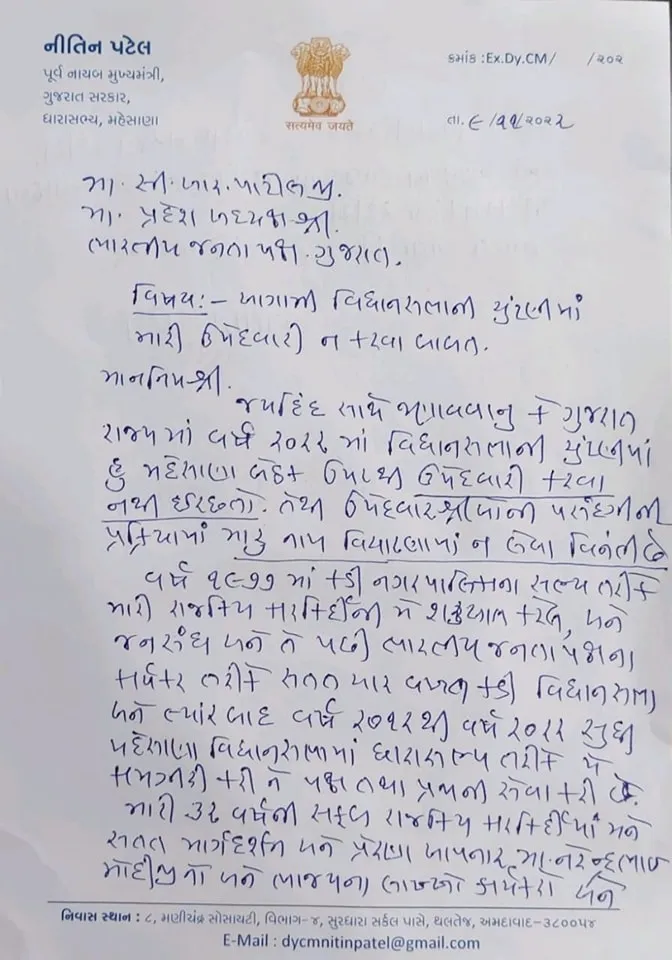 નીતિન પટેલ
પૂર્વ નાયબ મુખ્યમંત્રી,
ગુજરાત સરકાર,
ધારાસભ્ય, મહેસાણા
सत्यमेव जयते
ક્રમાંક :Ex.Dy.CM/ /૨૦૨
તા. ૯/૧૧/૨૦૨૨
મા. સી. આર. પાટીલજી.
મા. પ્રદેશ અધ્યક્ષશ્રી.
ભારતીય જનતા પક્ષ. ગુજરાત.
વિષય:- આગામી વિધાનસભાની ચુંટણીમાં
મારી ઉમેદવારી ન કરવા બાબત.
માનનિયશ્રી.
જયહિંદ સાથે જણાવવાનુ કે ગુજરાત
રાજ્યમાં વર્ષ ૨૦૨૨ માં વિધાનસભાની ચુંટણીમાં
હું મહેસાણા બેઠક ઉપરથી ઉમેદવારી કરવા
નથી ઈચ્છતો. તેથી ઉમેદવારશ્રીઓની પસંદગીની
પ્રક્રિયામાં મારૂ નામ વિચારણામાં ન લેવા વિનંતી છે
વર્ષ ૧૯૭૭ માં કડી નગરપાલિકાના સભ્ય તરીકે
મારી રાજકિય કારકિર્દીની મે શરૂઆત કરેલ, અને
જનસંઘ અને તે પછી ભારતીય જનતા પક્ષના
કાર્યકર તરીકે સતત ચાર વખત કડી વિધાનસભા
અને ત્યાર બાદ વર્ષ ૨૦૧૨ થી વર્ષ ૨૦૨૨ સુધી
મહેસાણા વિધાનસભામાં ધારાસભ્ય તરીકે મે
કામગીરી કરી ને પક્ષ તથા પ્રજાની સેવા કરી છે.
મારી ૩૨ વર્ષની સફળ રાજકિય કારકિર્દીમાં મને
સતત માર્ગદર્શન અને પ્રેરણા આપનાર મા. નરેન્દ્રભાઈ
મોદીજીનો અને ભાજપના લાખ્ખો કાર્યકરો અને
નિવાસ સ્થાન : ૮, મણીચંદ્ર સોસાયટી, વિભાગ-૪, સુરધારા સર્કલ પાસે, થલતેજ, અમદાવાદ-૩૮૦૦૫૪
E-Mail : dycmnitinpatel@gmail.com